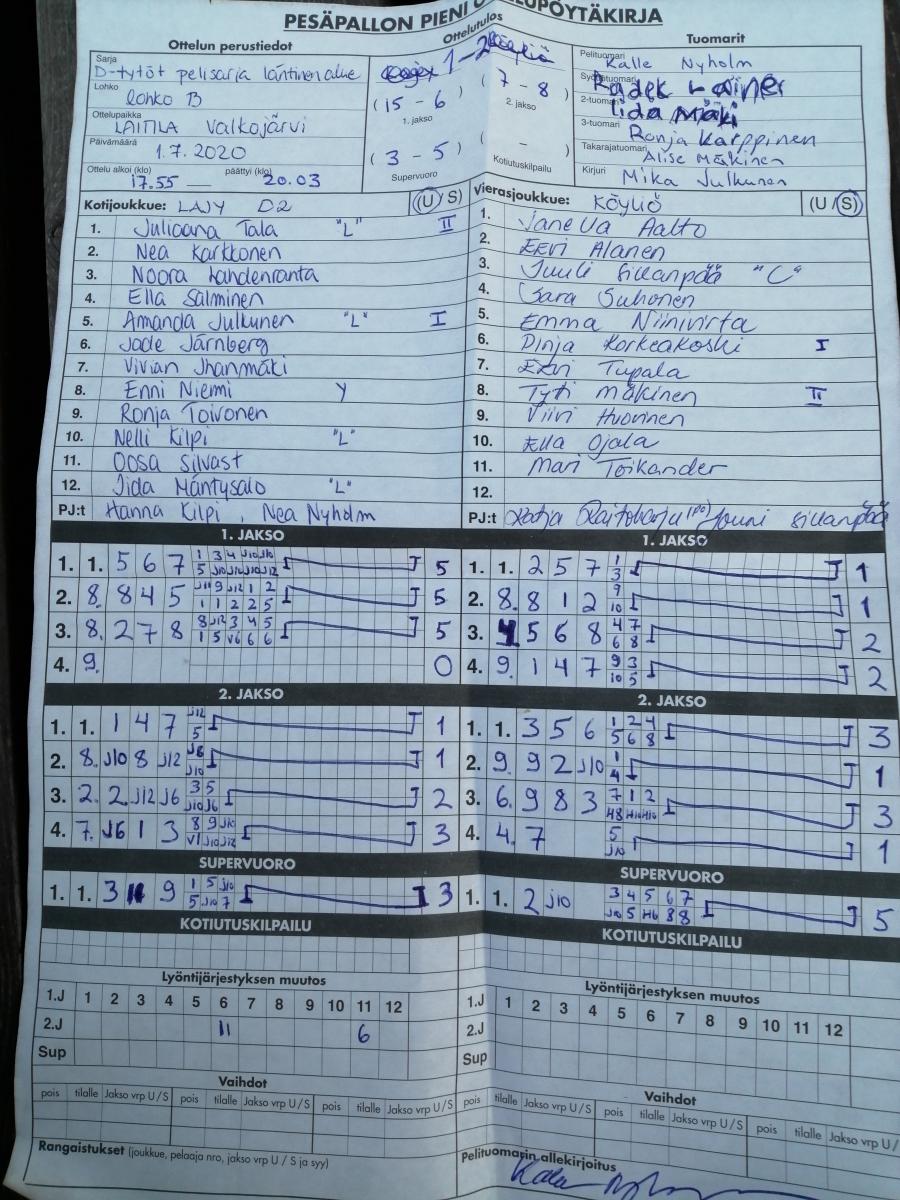 PESÄPALLON PIENI
Ottelun perustiedot
Ottelutulos
Tuomarit
Sarja
D-tytöt pelisarja läntinen alue
Lohko
lohko B
Ottelupaikka
LAITILA Valkojärvi
Päivämäärä
1.7.2020
Ottelu alkoi (klo) päättyi (klo)
17.55 — 20.03
1-2
(15 - 6) (7 - 8)
1. jakso 2. jakso
(3 - 5) ( - )
Supervuoro Kotiutuskilpailu
Pelituomari
Kalle Nyholm
Syöttötuomari
Radek
2-tuomari
Iida Mäki
3-tuomari
Ronja Karppinen
Takarajatuomari
Alise Mäkinen
Kirjuri
Mika Julkunen
Kotijoukkue: LAJY D2 (U / S)
1. Julioana Tala "L" II
2. Nea Karkkonen
3. Noora
4. Ella Salminen
5. Amanda Julkunen "L" I
6. Jade Järnberg
7. Vivian Jhanmäki
8. Enni Niemi Y
9. Ronja Toivonen
10. Nelli Kilpi "L"
11. Oosa Silvast
12. Iida Mäntysalo "L"
PJ:t Hanna Kilpi, Nea Nyholm
Vierasjoukkue: KÖYLIÖ (U / S)
1. Aalto
2. Eevi Alanen
3. Juuli Sillanpää "C"
4. Sara Suhonen
5. Emma Niinivirta
6. Pinja Korkeakoski I
7. Eevi Tupala
8. Tyti Mäkinen II
9. Viivi Huovinen
10. Ella Ojala
11. Mari Toikander
12.
PJ:t Jouni Sillanpää
1. JAKSO
1. 1. 5 6 7 1 3 4 J10 J10 5
5 J10 J10 J10 J12
2. 8. 8 4 5 J11 9 J12 1 2 5
1 1 2 2 5
3. 8. 2 7 8 8 J12 3 4 5 5
1 5 V6 6 6
4. 9. 0
1. JAKSO
1. 1. 2 5 7 1 1
3
2. 8. 8 1 2 9 1
10
3. 4 5 6 8 4 7 2
6 8
4. 9. 1 4 7 9 3 2
10 5
2. JAKSO
1. 1. 1 4 7 J12 1
5
2. 8. J10 8 J12 J6 1
J10
3. 2. 2 J12 J6 3 5 2
J10 J6
4. 7. J6 1 3 8 9 J10 3
V1 J10 J12
2. JAKSO
1. 1. 3 5 6 1 2 4 3
5 6 8
2. 9. 9 2 J10 1 1
4
3. 6. 9 8 3 7 1 2 3
H8 H10 H10
4. 4. 7 5 1
J10
SUPERVUORO
1. 1. 3 9 1 5 J10 3
5 J10 7
SUPERVUORO
1. 1. 2 J10 3 4 5 6 7 5
J10 5 H6 8 8
KOTIUTUSKILPAILU
KOTIUTUSKILPAILU
Lyöntijärjestyksen muutos
1.J 1 2 3 4 5 6 7 8 9 10 11 12
2.J 11 6
Sup
Lyöntijärjestyksen muutos
1.J 1 2 3 4 5 6 7 8 9 10 11 12
2.J
Sup
Vaihdot
pois tilalle Jakso vrp U / S pois tilalle Jakso vrp U / S pois tilalle Jakso vrp U / S
Vaihdot
pois tilalle Jakso vrp U / S pois tilalle Jakso vrp U / S pois tilalle Jakso vrp U / S
Rangaistukset (joukkue, pelaaja nro, jakso vrp U / S ja syy)
Pelituomarin allekirjoitus